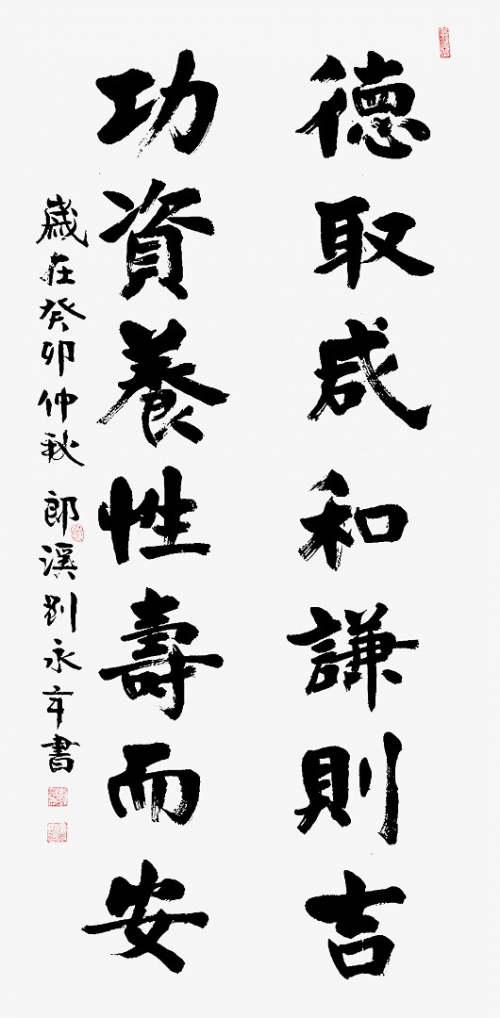 德取咸和謙則吉
功資養性壽而安
歲在癸卯仲秋郎溪劉永年書